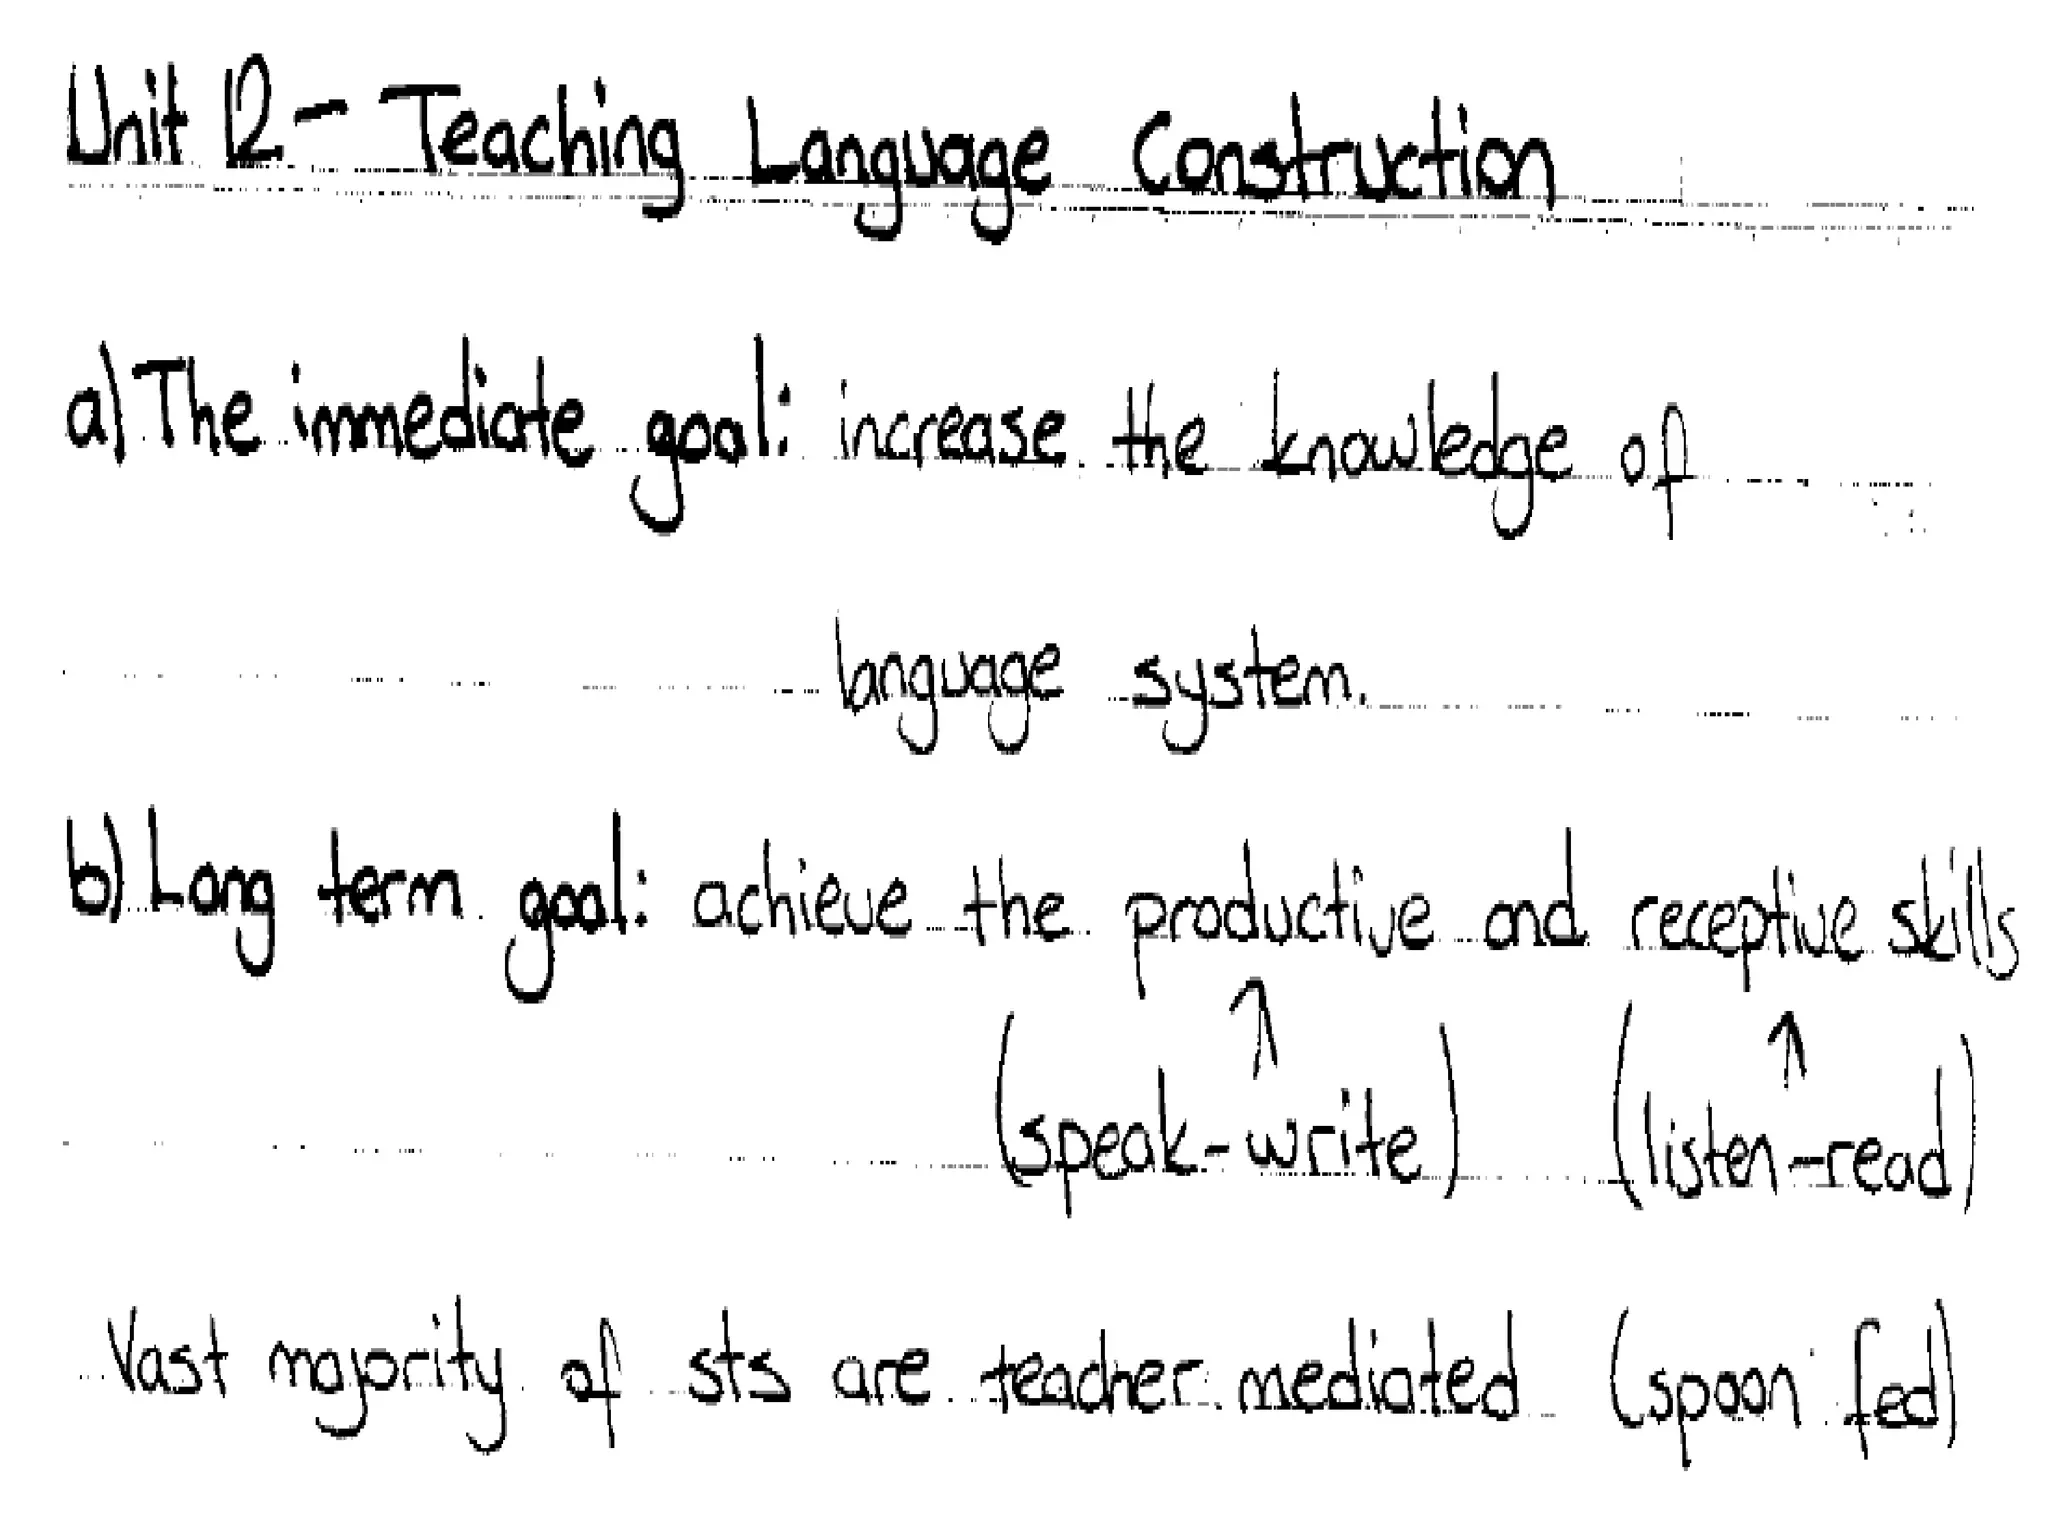 Unit 12 - Teaching Language Construction
a) The immediate goal: increase the knowledge of
language system.
b) Long term goal: achieve the productive and receptive skills
(speak-write) (listen-read)
Vast majority of sts are teacher mediated (spoon fed)